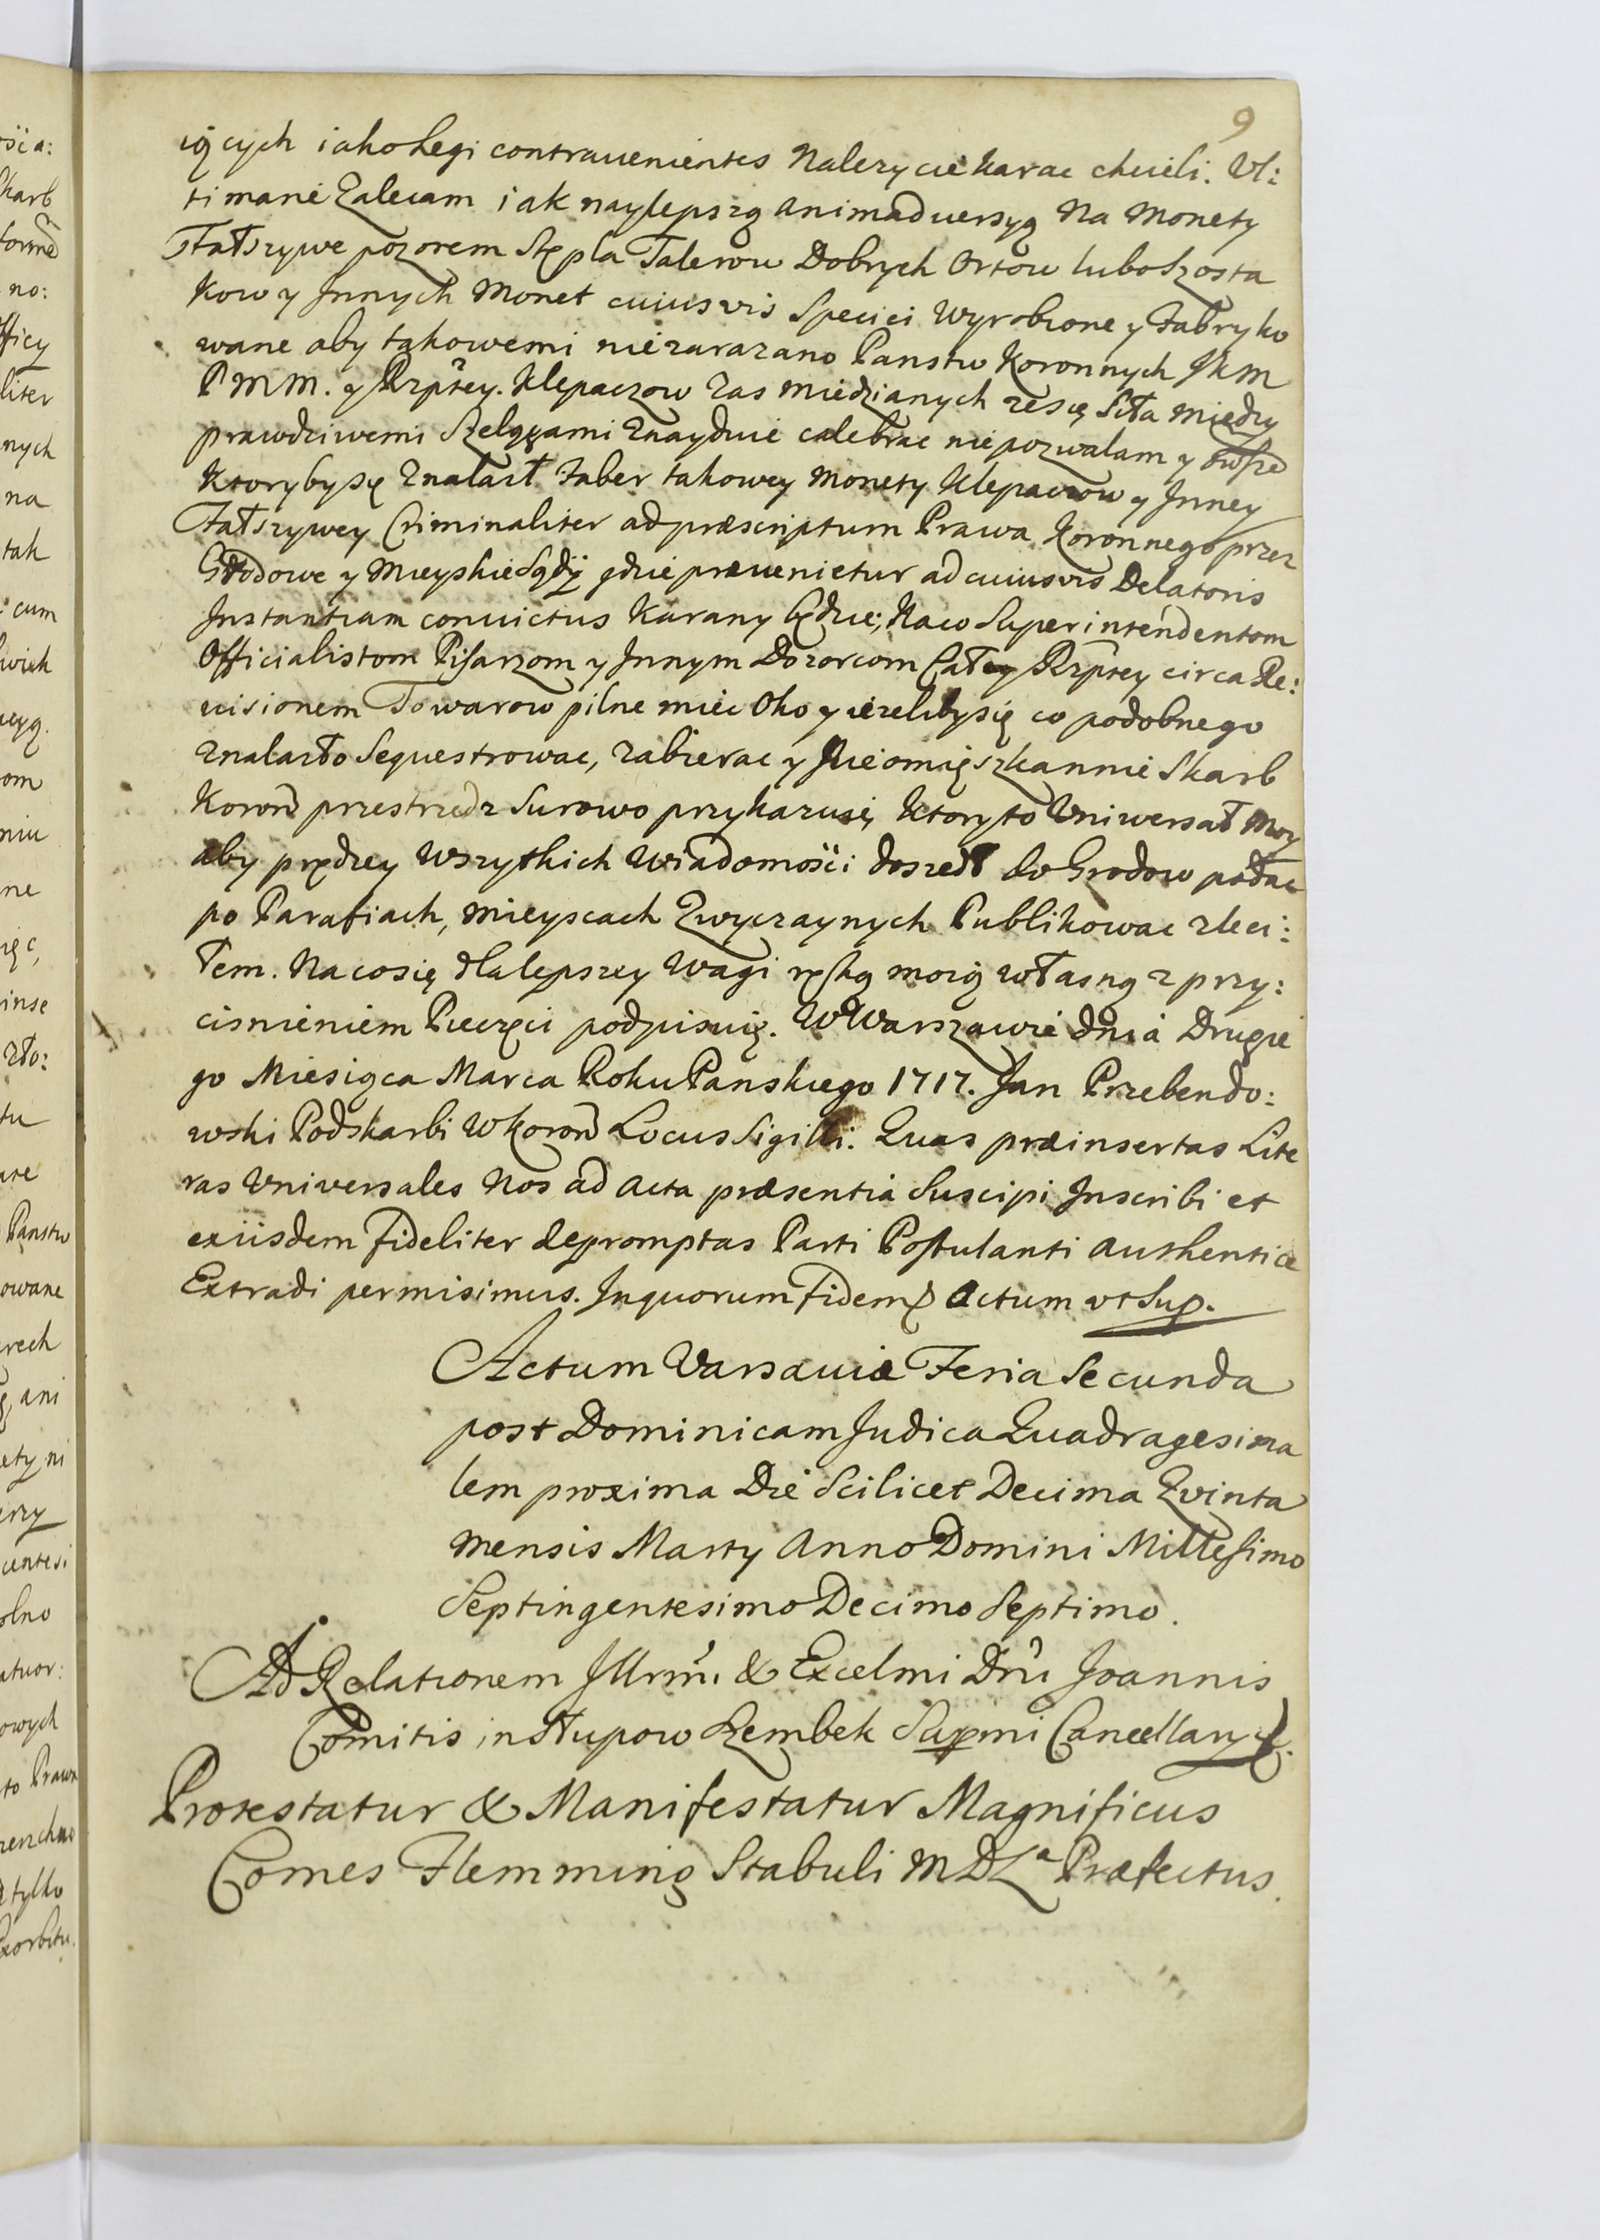 9
iących iako Legi contravenientes Nalezycie karac chcieli. Vl:
timarie Zalecam iak naylepszą animadversyą Na Monety
Fałszywe pozorem Stępla Talerow Dobrych Ortow lubo Szosta
kow y Innych Monet cuiusvis Speciei Wyrobione y Fabryko
wane aby takowemi nie zarazano Panstw Koronnych JKM
PMM. y Rzptey. Klepaczow zas miedzianych ze się Siła między
prawdziwemi Szelągami Znayduie calebrac niepozwalam y owsze
Ktoryby się Znalazł Faber takowey Monety Klepaczow y Inney
Fałszywey Criminaliter ad præscriptum Prawa Koronnego przez
Grodowe y Mieyskie Sądy gdzie prævenietur ad cuiusvis Delatoris
Instantiam convictus Karany będzie; Naco Superintendentom
Officialistom Pisarzom y Innym Dozorcom Całey Rzptey circa Re:
visionem Towarow pilne miec Oko y iezeliby się co podobnego
znalazło Sequestrowac, zabierac y Nieomięszkannie Skarb
Koron przestrzedz Surowo przykazuię, Ktory to Uniwersał Moy
aby prędzey Wszytkich Wiadomości doszedł do Grodow podac
po Parafiach, Mieyscach Zwyczaynych Publikowac zleci:
łem. Naco się dla lepszey Wagi ręką moią własną z przy:
cisnieniem Pieczęci podpisuię. W Warszawie dnia Drugie
go Miesiąca Marca Roku Panskiego 1717. Jan Przebendo:
wski Podskarbi W Koron Locus Sigilli. Quas præinsertas Lite
ras Universales Nos ad Acta præsentia Suscipi Inscribi et
exiisdem fideliter depromptas Parti Postulanti authentice
Extradi permisimus. Inquorum Fidem Actum vt Sup.
Actum Varsaviæ Feria Secunda
post Dominicam Judica Quadragesima
lem proxima Die Scilicet Decima Qvinta
Mensis Marty Anno Domini Millesimo
Septingentesimo Decimo Septimo.
Ad Relationem Illrmi & Excelmi Dni Joannis
Comitis in Słupow Szembek Supmi Cancellary
Protestatur & Manifestatur Magnificus
Comes Flemming Stabuli MDL Præfectus.